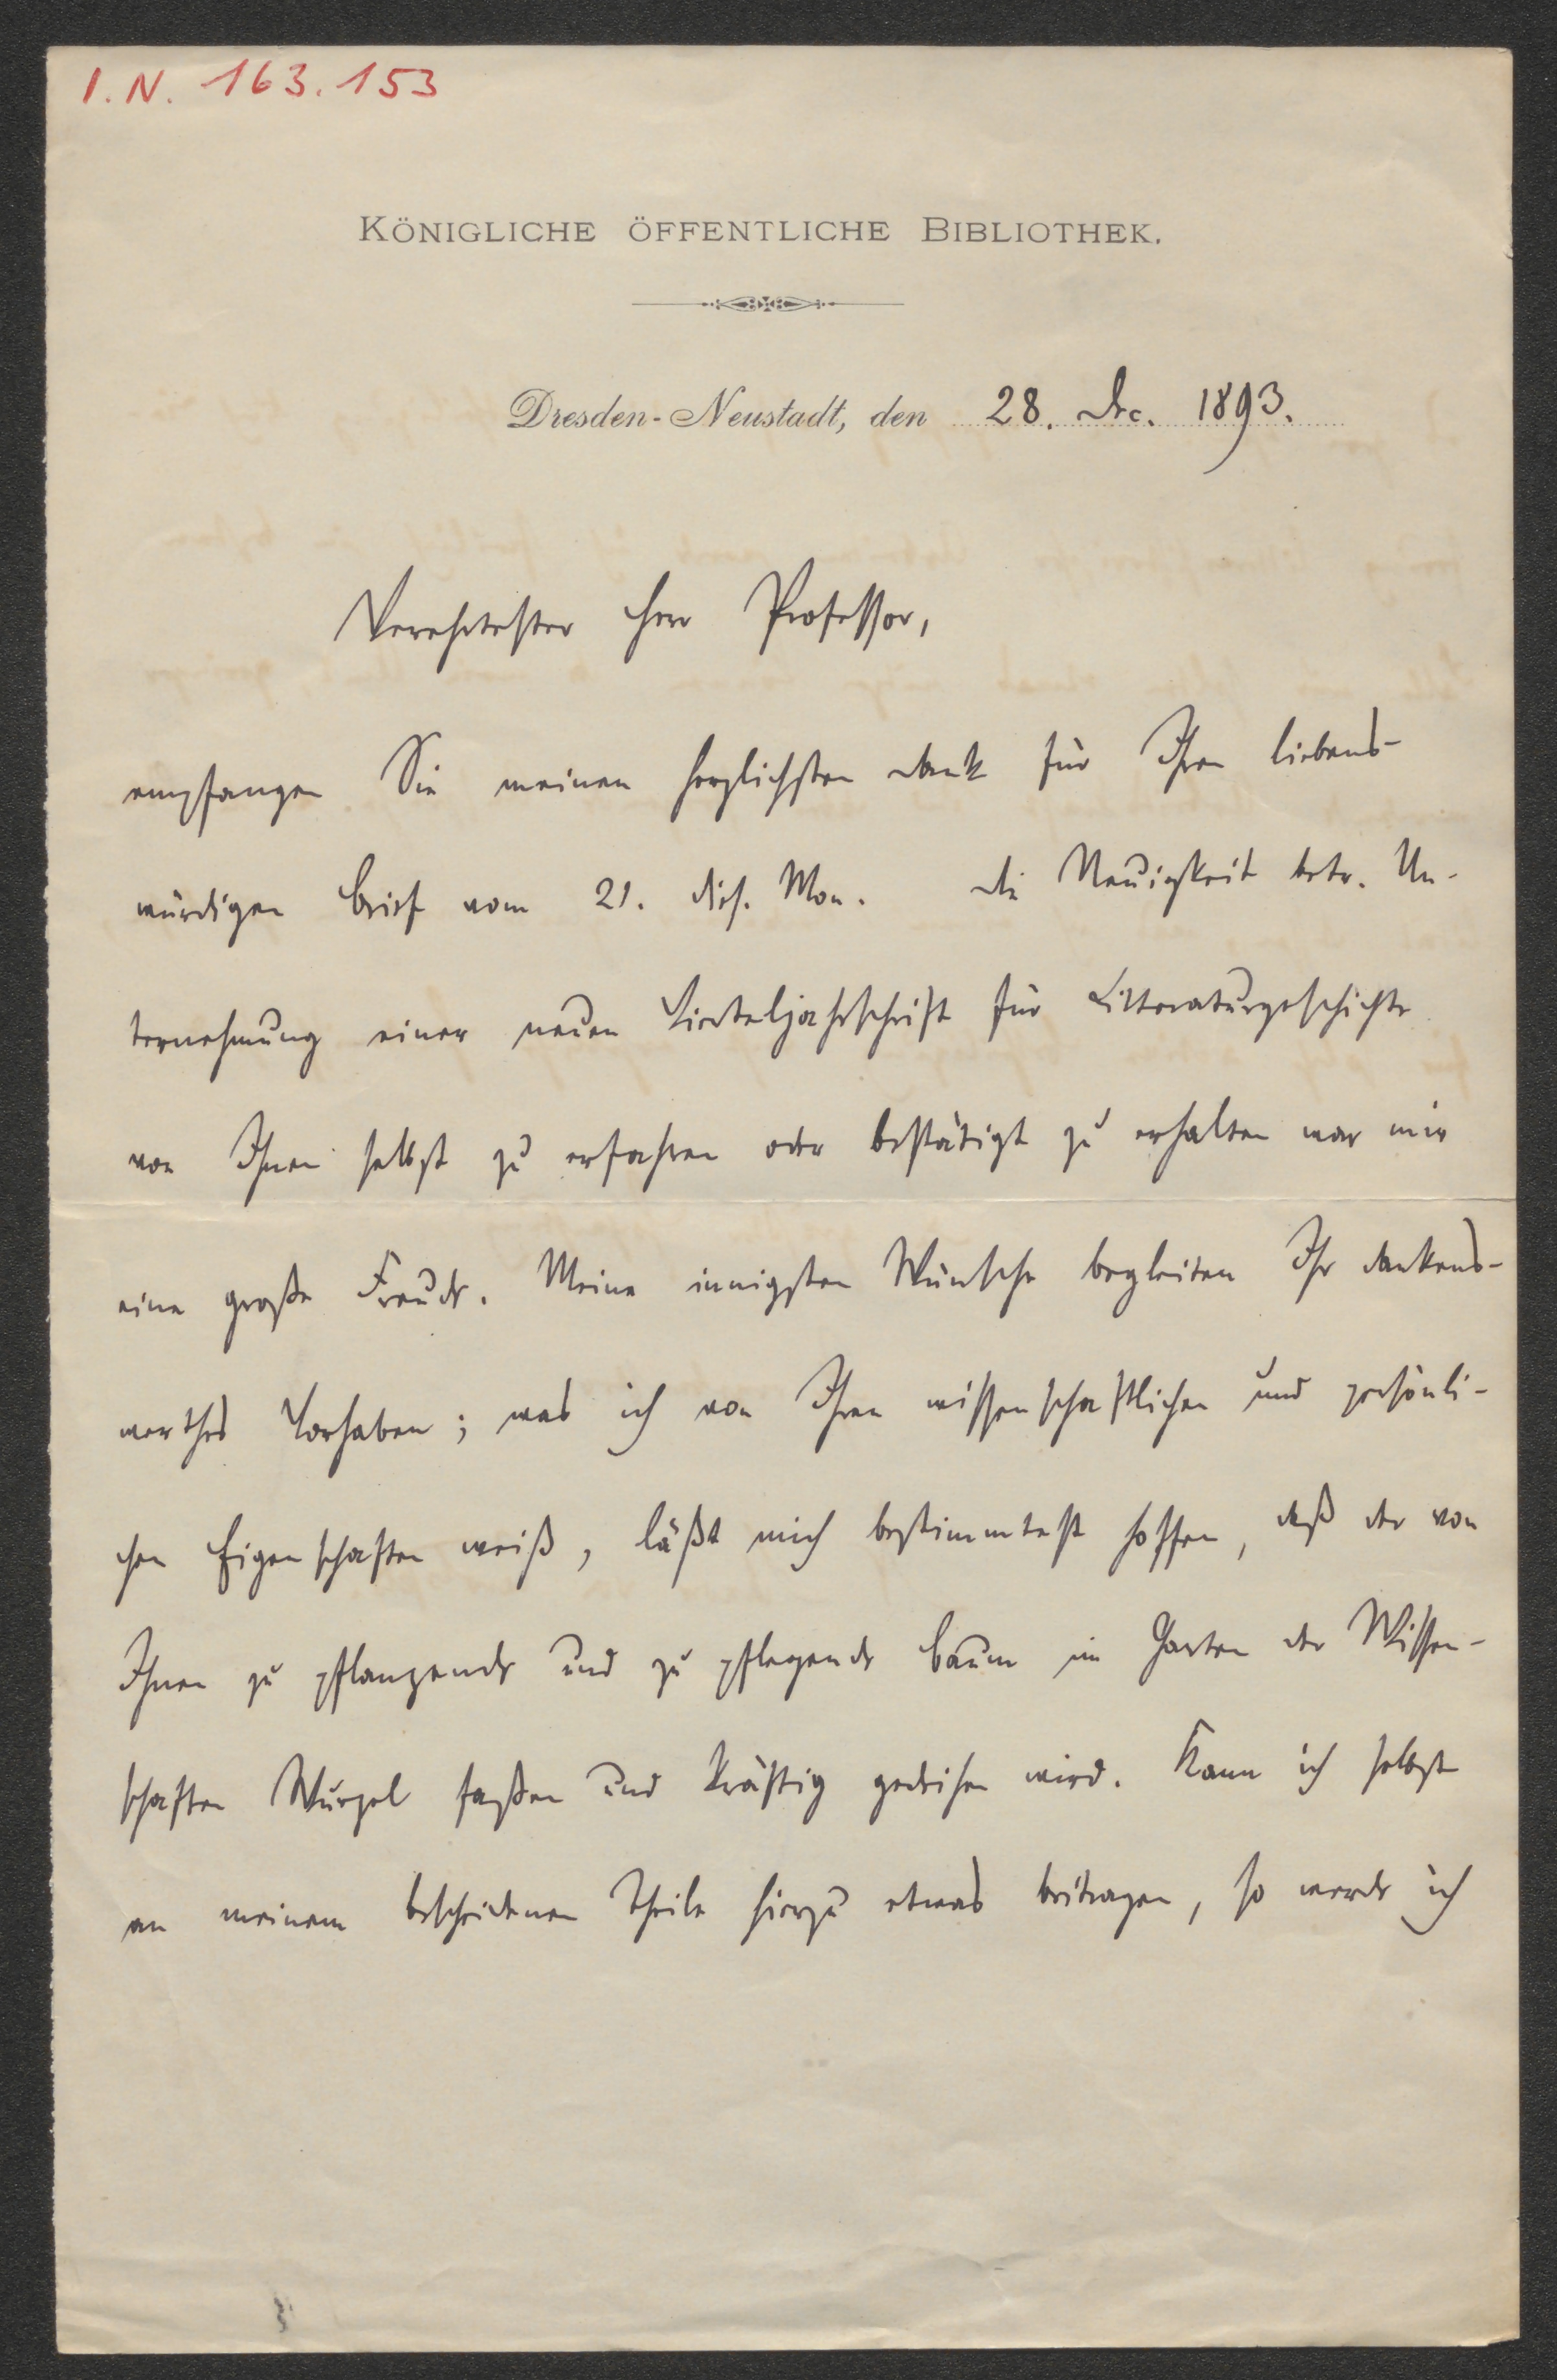 I.N. 163.153
KÖNIGLICHE ÖFFENTLICHE BIBLIOTHEK.
Dresden-Neustadt, den 28. Dec. 1893.
Verehrtester Herr Professor,
empfangen Sie meinen herzlichsten Dank für Ihren liebens-
würdigen Brief vom 21. dies. Mon. Die Neuigkeit betr. Un-
ternehmung einer neuen Vierteljahrschrift für Litteraturgeschichte
von Ihnen selbst zu erfahren oder bestätigt zu erhalten war mir
eine große Freude. Meine innigsten Wünsche begleiten Ihr dankens-
werthes Vorhaben; was ich von Ihren wissenschaftlichen und persönli-
chen Eigenschaften weiß, läßt mich bestimmtest hoffen, daß der von
Ihnen zu pflanzende und zu pflegende Baum im Garten der Wissen-
schaften Wurzel faßen und kräftig gedeihen wird. Kann ich selbst
an meinem bescheidenen Theile hierzu etwas beitragen, so werde ich